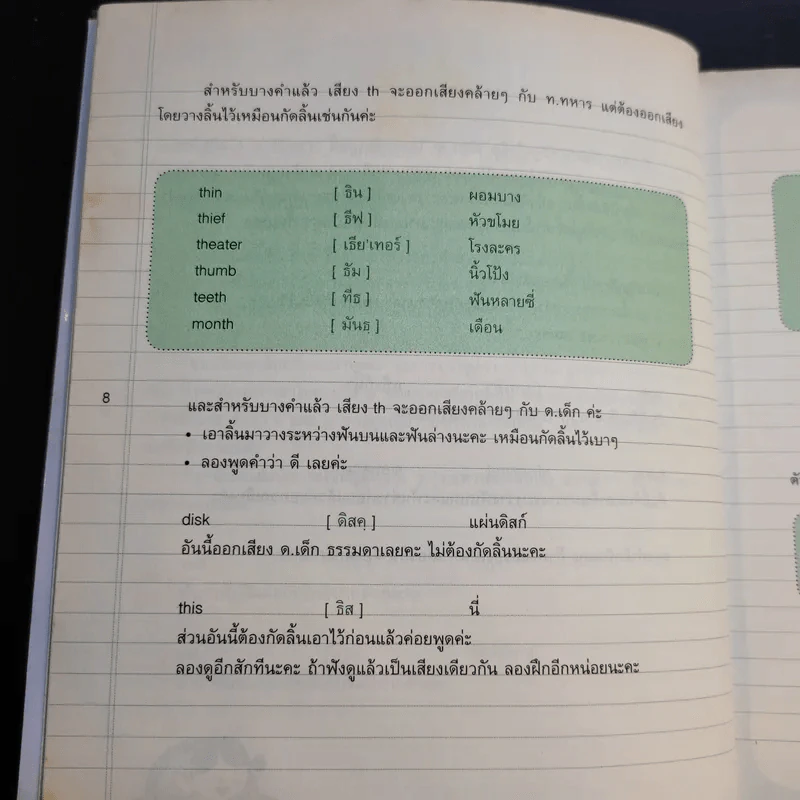 สำหรับบางคำแล้ว เสียง th จะออกเสียงคล้ายๆ กับ ท.ทหาร แต่ต้องออกเสียง
โดยวางลิ้นไว้เหมือนกัดลิ้นเช่นกันค่ะ
thin [ ธิน ] ผอมบาง
thief [ ธีฟ ] หัวขโมย
theater [ เธีย'เทอร์ ] โรงละคร
thumb [ ธัม ] นิ้วโป้ง
teeth [ ทีธ ] ฟันหลายซี่
month [ มันธฺ ] เดือน
8
และสำหรับบางคำแล้ว เสียง th จะออกเสียงคล้ายๆ กับ ด.เด็ก ค่ะ
• เอาลิ้นมาวางระหว่างฟันบนและฟันล่างนะคะ เหมือนกัดลิ้นไว้เบาๆ
• ลองพูดคำว่า ดี เลยค่ะ
disk [ ดิสคฺ ] แผ่นดิสก์
อันนี้ออกเสียง ด.เด็ก ธรรมดาเลยคะ ไม่ต้องกัดลิ้นนะคะ
this [ ธิส ] นี่
ส่วนอันนี้ต้องกัดลิ้นเอาไว้ก่อนแล้วค่อยพูดค่ะ
ลองดูอีกสักทีนะคะ ถ้าฟังดูแล้วเป็นเสียงเดียวกัน ลองฝึกอีกหน่อยนะคะ